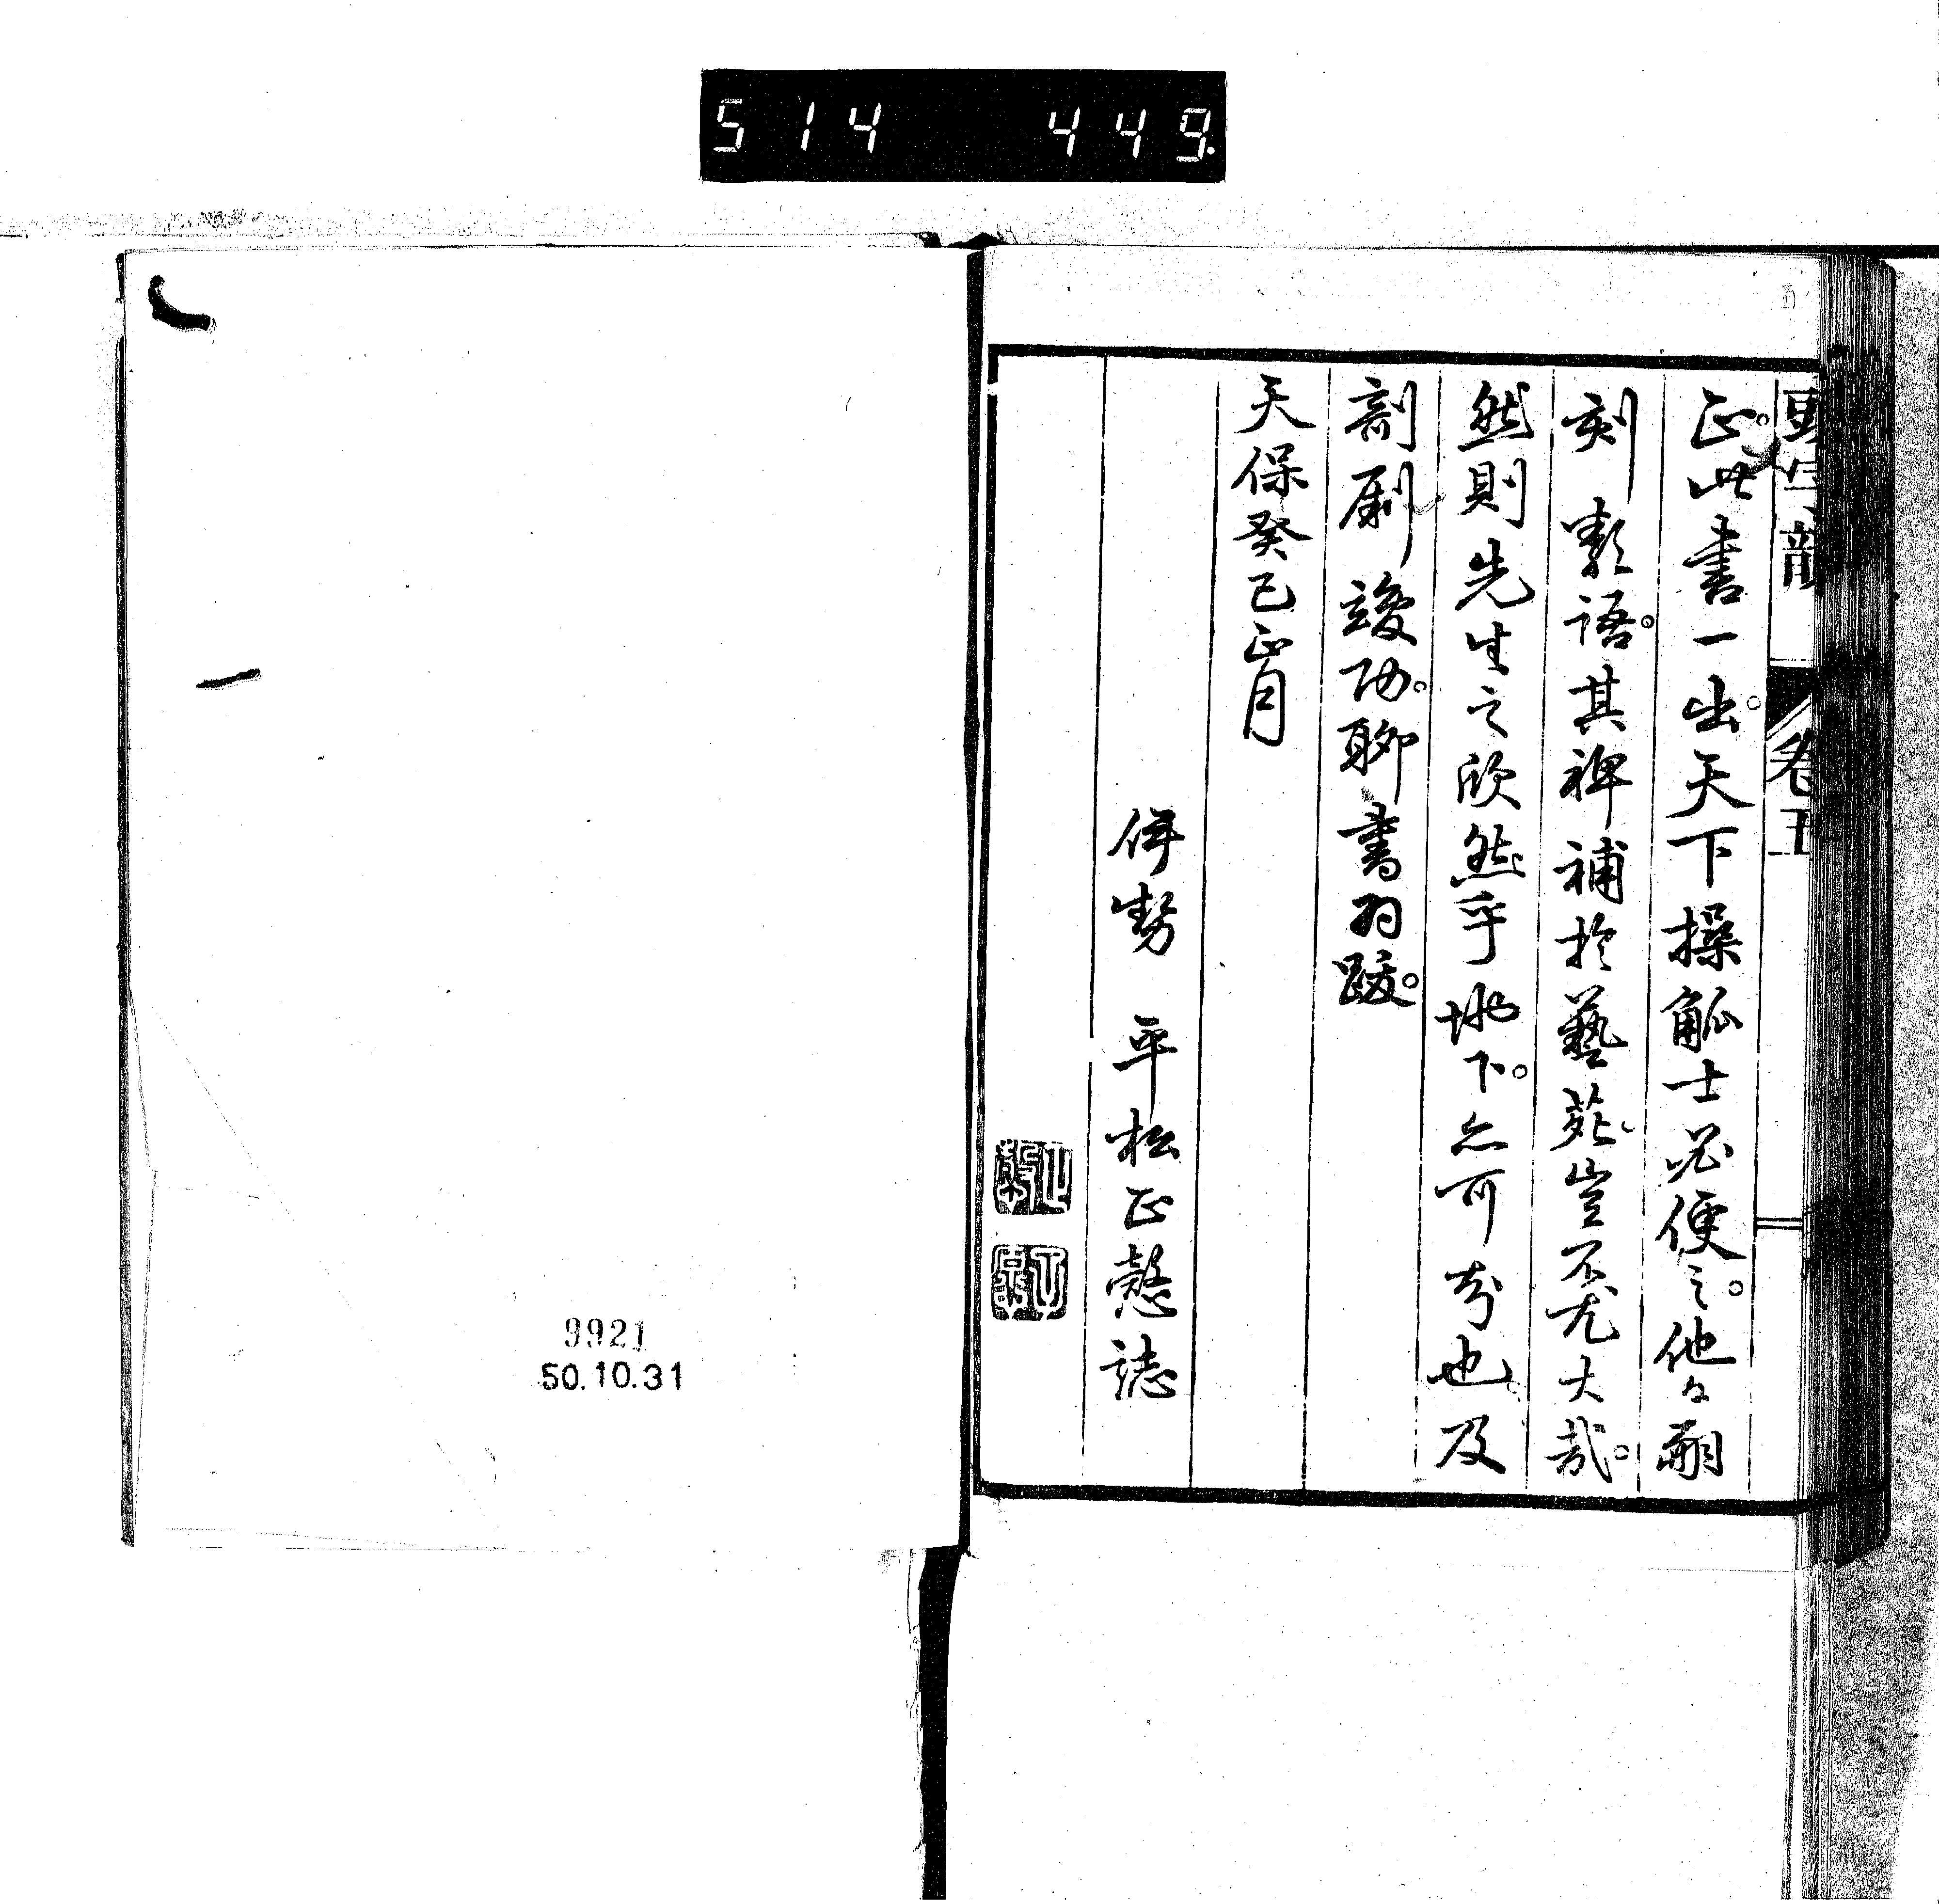 514 449.
卷五
正。此書一出。天下操觚士必便之。他日翻
刻藪語。其裨補於藝苑豈不尤大哉。
然則先生之欣然乎地下。亦可知也及
剞劂竣功。聊書為跋。
天保癸巳正月
伊勢 平松正愨誌
9921
50.10.31